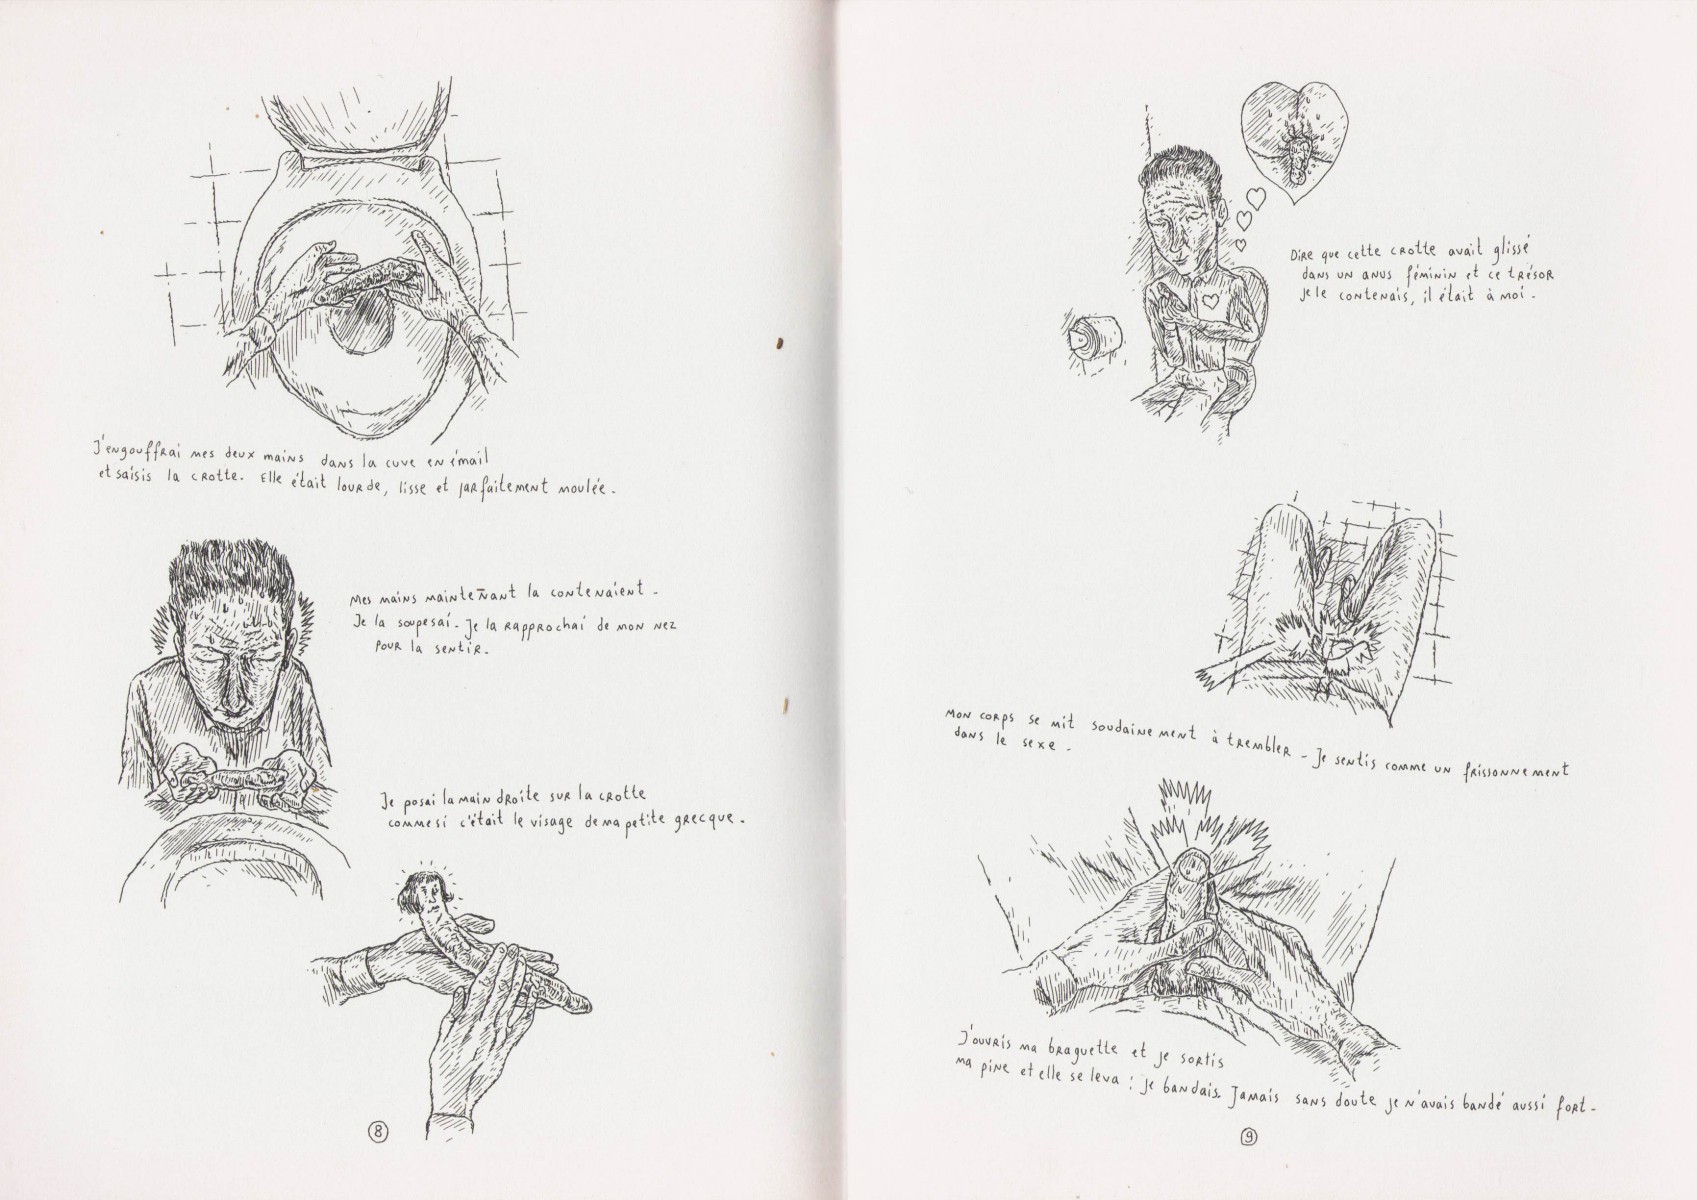 J'engouffrai mes deux mains dans la cuve en émail
et saisis la crotte. Elle était lourde, lisse et parfaitement moulée.
Mes mains maintenant la contenaient.
Je la soupesai. Je la rapprochai de mon nez
pour la sentir.
Je posai la main droite sur la crotte
comme si c'était le visage de ma petite grecque.
8
Dire que cette crotte avait glissé
dans un anus féminin et ce trésor
je le contenais, il était à moi.
Mon corps se mit soudainement à trembler. Je sentis comme un frissonnement
dans le sexe.
J'ouvris ma braguette et je sortis
ma pine et elle se leva : je bandais. Jamais sans doute je n'avais bandé aussi fort.
9